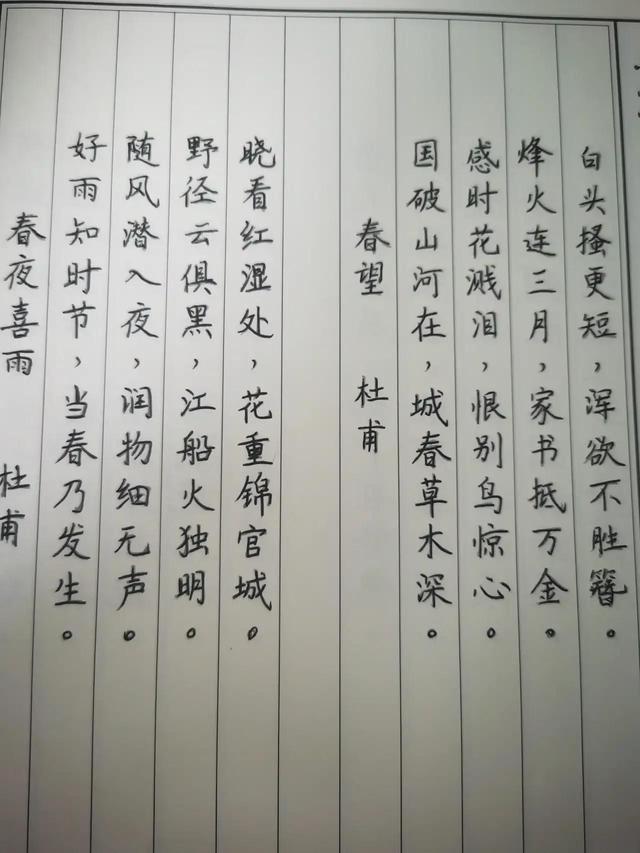 春夜喜雨 杜甫
好雨知时节，当春乃发生。
随风潜入夜，润物细无声。
野径云俱黑，江船火独明。
晓看红湿处，花重锦官城。
春望 杜甫
国破山河在，城春草木深。
感时花溅泪，恨别鸟惊心。
烽火连三月，家书抵万金。
白头搔更短，浑欲不胜簪。